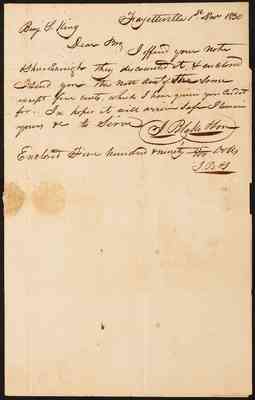 Fayetteville 1st Nov 1830
Benj S. King
Dear Sir, I offered your Note
this discounted it & enclosed
I send you the nett the Same
except five cents, which I have given you Credit
for. In hopes it will arrive safe I remain
yours &c to Serve
Enclosed Five hundred & ninety Dolls